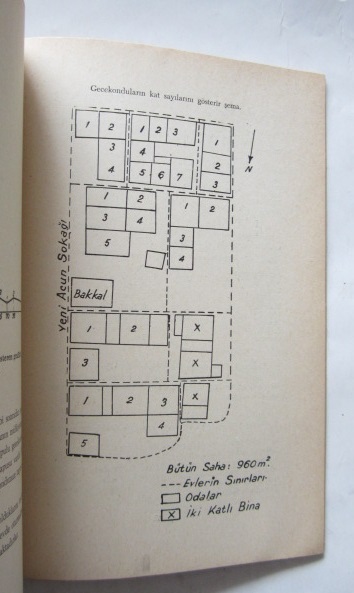 Gecekonduların kat sayılarını gösterir şema.
1 2 1 2 3 1
3 4 2
4 5 6 7 3
N
1 2 1 2
3 4 3
5 4
Yeni Açun Sokağı
Bakkal
1 2 X
3 X
1 2 3 X
4
5
Bütün Saha: 960 m².
Evlerin Sınırları
Odalar
X İki Katlı Bina